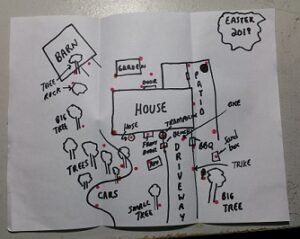 EASTER
2018
BARN
GARDEN
TREE
ROCK
DOOR
PATIO
HOUSE
TRAMPOLINE
BENCH
BIG
TREE
HOSE
FRONT
DOOR
DRIVEWAY
BBQ
Sand
box
TREES
TRIKE
CARS
SMALL
TREE
BIG
TREE